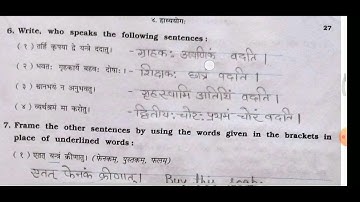 ४. हास्ययोगः
27
6. Write, who speaks the following sentences :
(१) तर्हि कृपया द्वे यन्त्रे ददातु। - ग्राहकः आपणिकं वदति।
(२) भवतः गृहकार्ये बहवः दोषाः। - शिक्षकः छात्रं वदति।
(३) श्वानभयं न अनुभवतु। - गृहस्वामि अतिथिं वदति।
(४) व्यर्थश्रमं मा करोतु। - द्वितीयः चोरः प्रथमं चोरं वदति।
7. Frame the other sentences by using the words given in the brackets in
place of underlined words :
(१) एतत् यन्त्रं क्रीणातु। (फेनकम्, पुस्तकम्, फलम्)
एतत् फेनकं क्रीणातु। Buy this